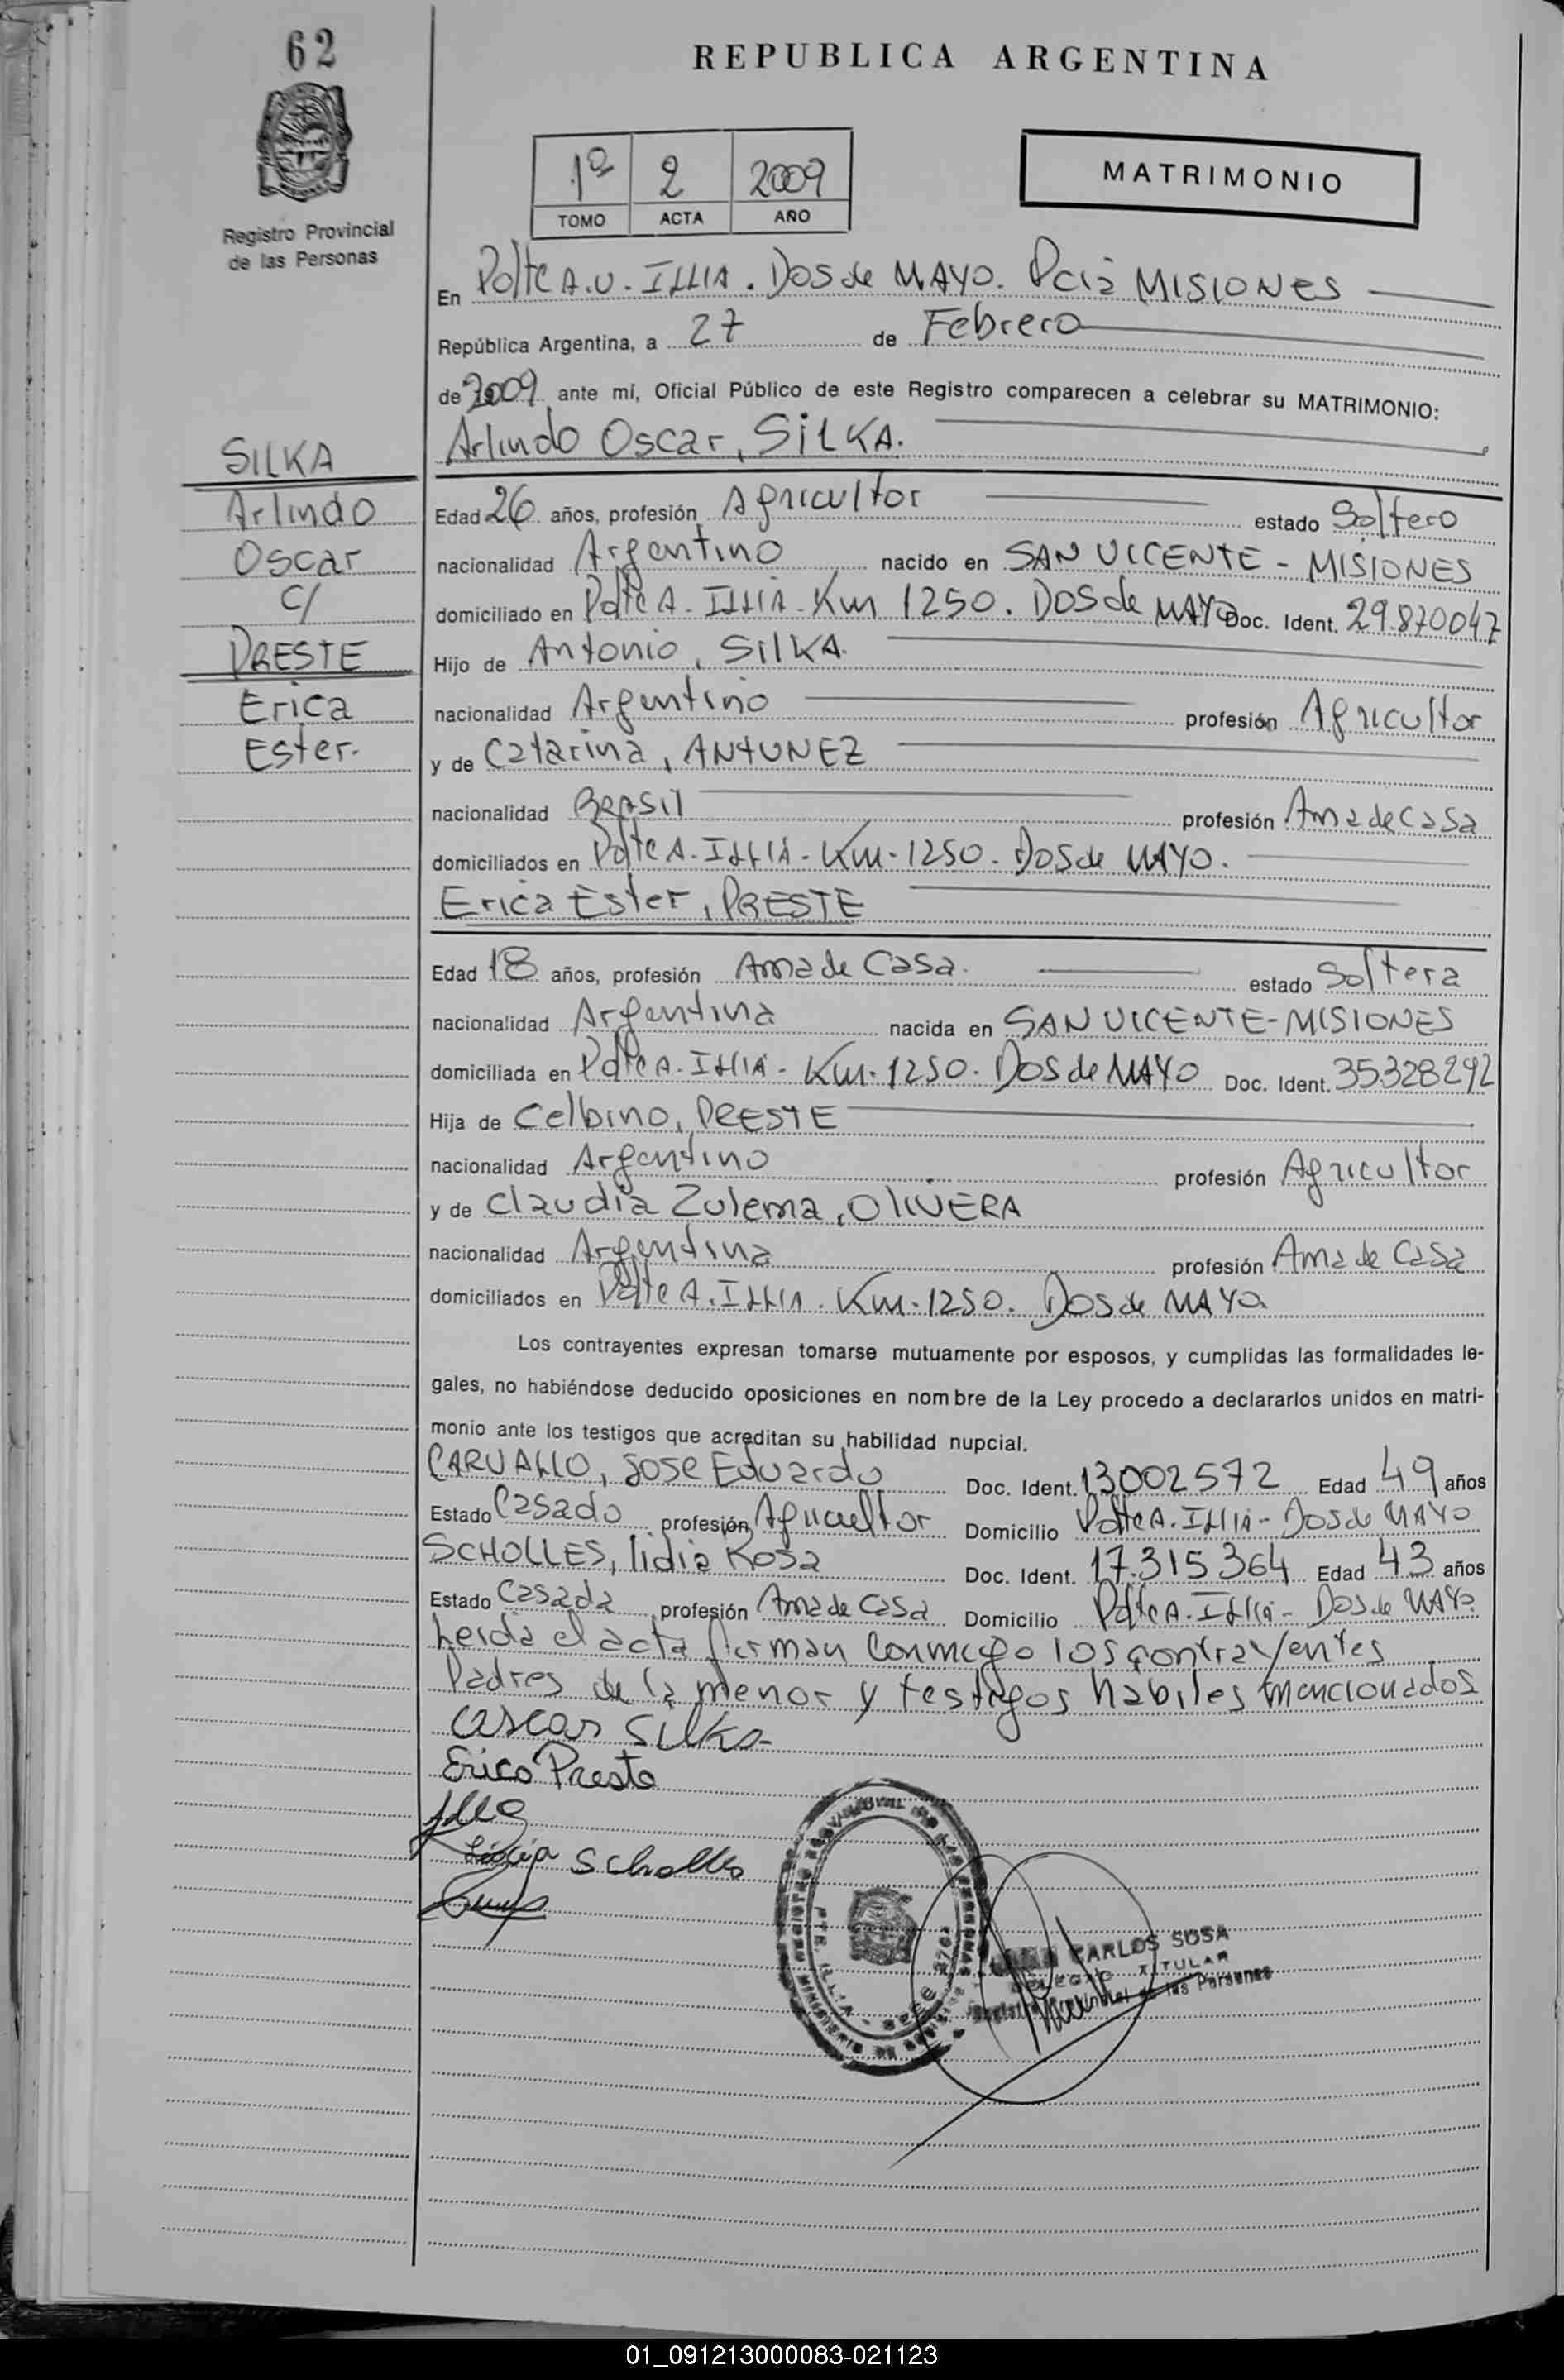 62
REPUBLICA ARGENTINA
1º 2 2009
TOMO ACTA AÑO
MATRIMONIO
Registro Provincial
de las Personas
En Pdte A.U. ILLIA. DOS de MAYO. Pcia MISIONES
República Argentina, a 27 de Febrero
de 2009 ante mí, Oficial Público de este Registro comparecen a celebrar su MATRIMONIO:
Arlindo Oscar, SILKA.
SILKA
Arlindo
Oscar
C/
PRESTE
Erica
Ester.
Edad 26 años, profesión Agricultor estado Soltero
nacionalidad Argentino nacido en SAN VICENTE - MISIONES
domiciliado en Pdte A. ILLIA. Km 1250. DOS de MAYO Doc. Ident. 29.870047
Hijo de Antonio, SILKA.
nacionalidad Argentino profesión Agricultor
y de Catarina, ANTUNEZ
nacionalidad BRASIL profesión Ama de Casa
domiciliados en Pdte A. ILLIA - Km. 1250. DOS de MAYO.
Erica Ester, PRESTE
Edad 18 años, profesión Ama de Casa. estado Soltera
nacionalidad Argentina nacida en SAN VICENTE - MISIONES
domiciliada en Pdte A. ILLIA - Km. 1250. DOS de MAYO Doc. Ident. 35328292
Hija de Celbino, PRESTE
nacionalidad Argentino profesión Agricultor
y de Claudia Zulema, OLIVERA
nacionalidad Argentina profesión Ama de Casa
domiciliados en Pdte A. ILLIA. Km. 1250. DOS de MAYO
Los contrayentes expresan tomarse mutuamente por esposos, y cumplidas las formalidades le-
gales, no habiéndose deducido oposiciones en nombre de la Ley procedo a declararlos unidos en matri-
monio ante los testigos que acreditan su habilidad nupcial.
CARVALLO, Jose Eduardo Doc. Ident. 13002572 Edad 49 años
Estado Casado profesión Agricultor Domicilio Pdte A. ILLIA - DOS de MAYO
SCHOLLES, lidia Rosa Doc. Ident. 17.315364 Edad 43 años
Estado Casada profesión Ama de Casa Domicilio Pdte A. ILLIA - DOS de MAYO
Leida el acta firman Conmigo los contrayentes
Padres de la menor y testigos habiles mencionados
Oscar Silka
Erica Preste
Lidia Scholles
PTE. ILLIA
CARLOS SOSA
DELEGADO TITULAR
Registro Provincial de las Personas
01_091213000083-021123